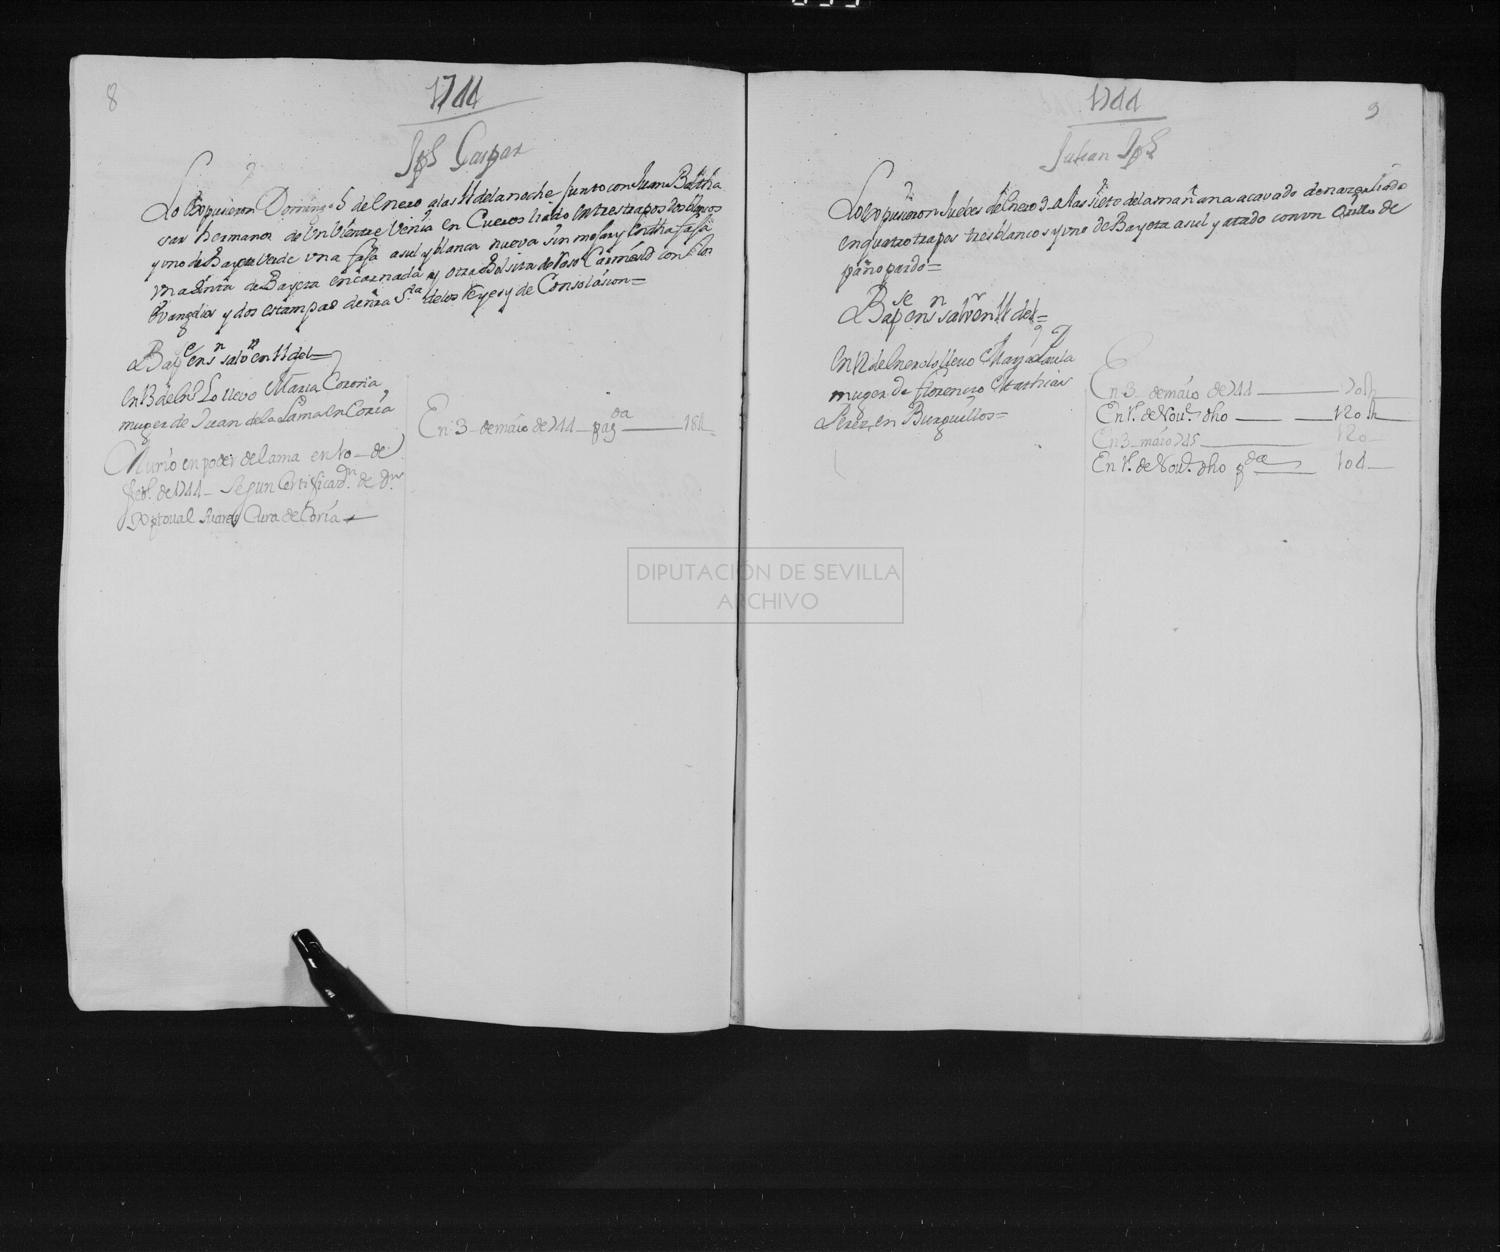 8
1744
Jph Gaspar
Lo Expusieron Domingo 5 de Enero a las 11 de la noche junto con Juana Baltha
sar hermanos de Un Vientre Venia en Cueros liado en tres trapos dos blancos
y uno de Bayeta Verde una faja asul y blanca nueva sin mojar y en dha faja
una Sinta de Bayeta encarnada y otra Bolsita de raso Carmesi con los
Evangelios y dos estampas de nra Sra de los Reyes y de Consolasion=
Bapse en Sn Salvr en 11 del
En 13 de Eno Lo llevo Maria Coronia
muger de Juan de la Lama en Coria
Murio en poder de la ama en 10 de
febo de 1744 Segun Certificazn de Dn
Xptoval Suares Cura de Coria
En 3 de maio de 744 pagda 184
1744
9
Julian Jph
Lo Expusieron Juebes de Enero 9 a las siete de la mañana acavado de nazer liado
en quatro trapos tres blancos y uno de Bayeta asul y atado con un Orillo de
paño pardo=
Bapse en Sn Salvr en 11 del=
En 12 de Enero lo llevo Maria Paula
muger de florencio Mathias
Perez en Burguillos=
En 3 de maio de 744
En 1º de Nove dho 120
En 3 maio 745 120
En 1º de Nove dho pda 104
DIPUTACIÓN DE SEVILLA
ARCHIVO